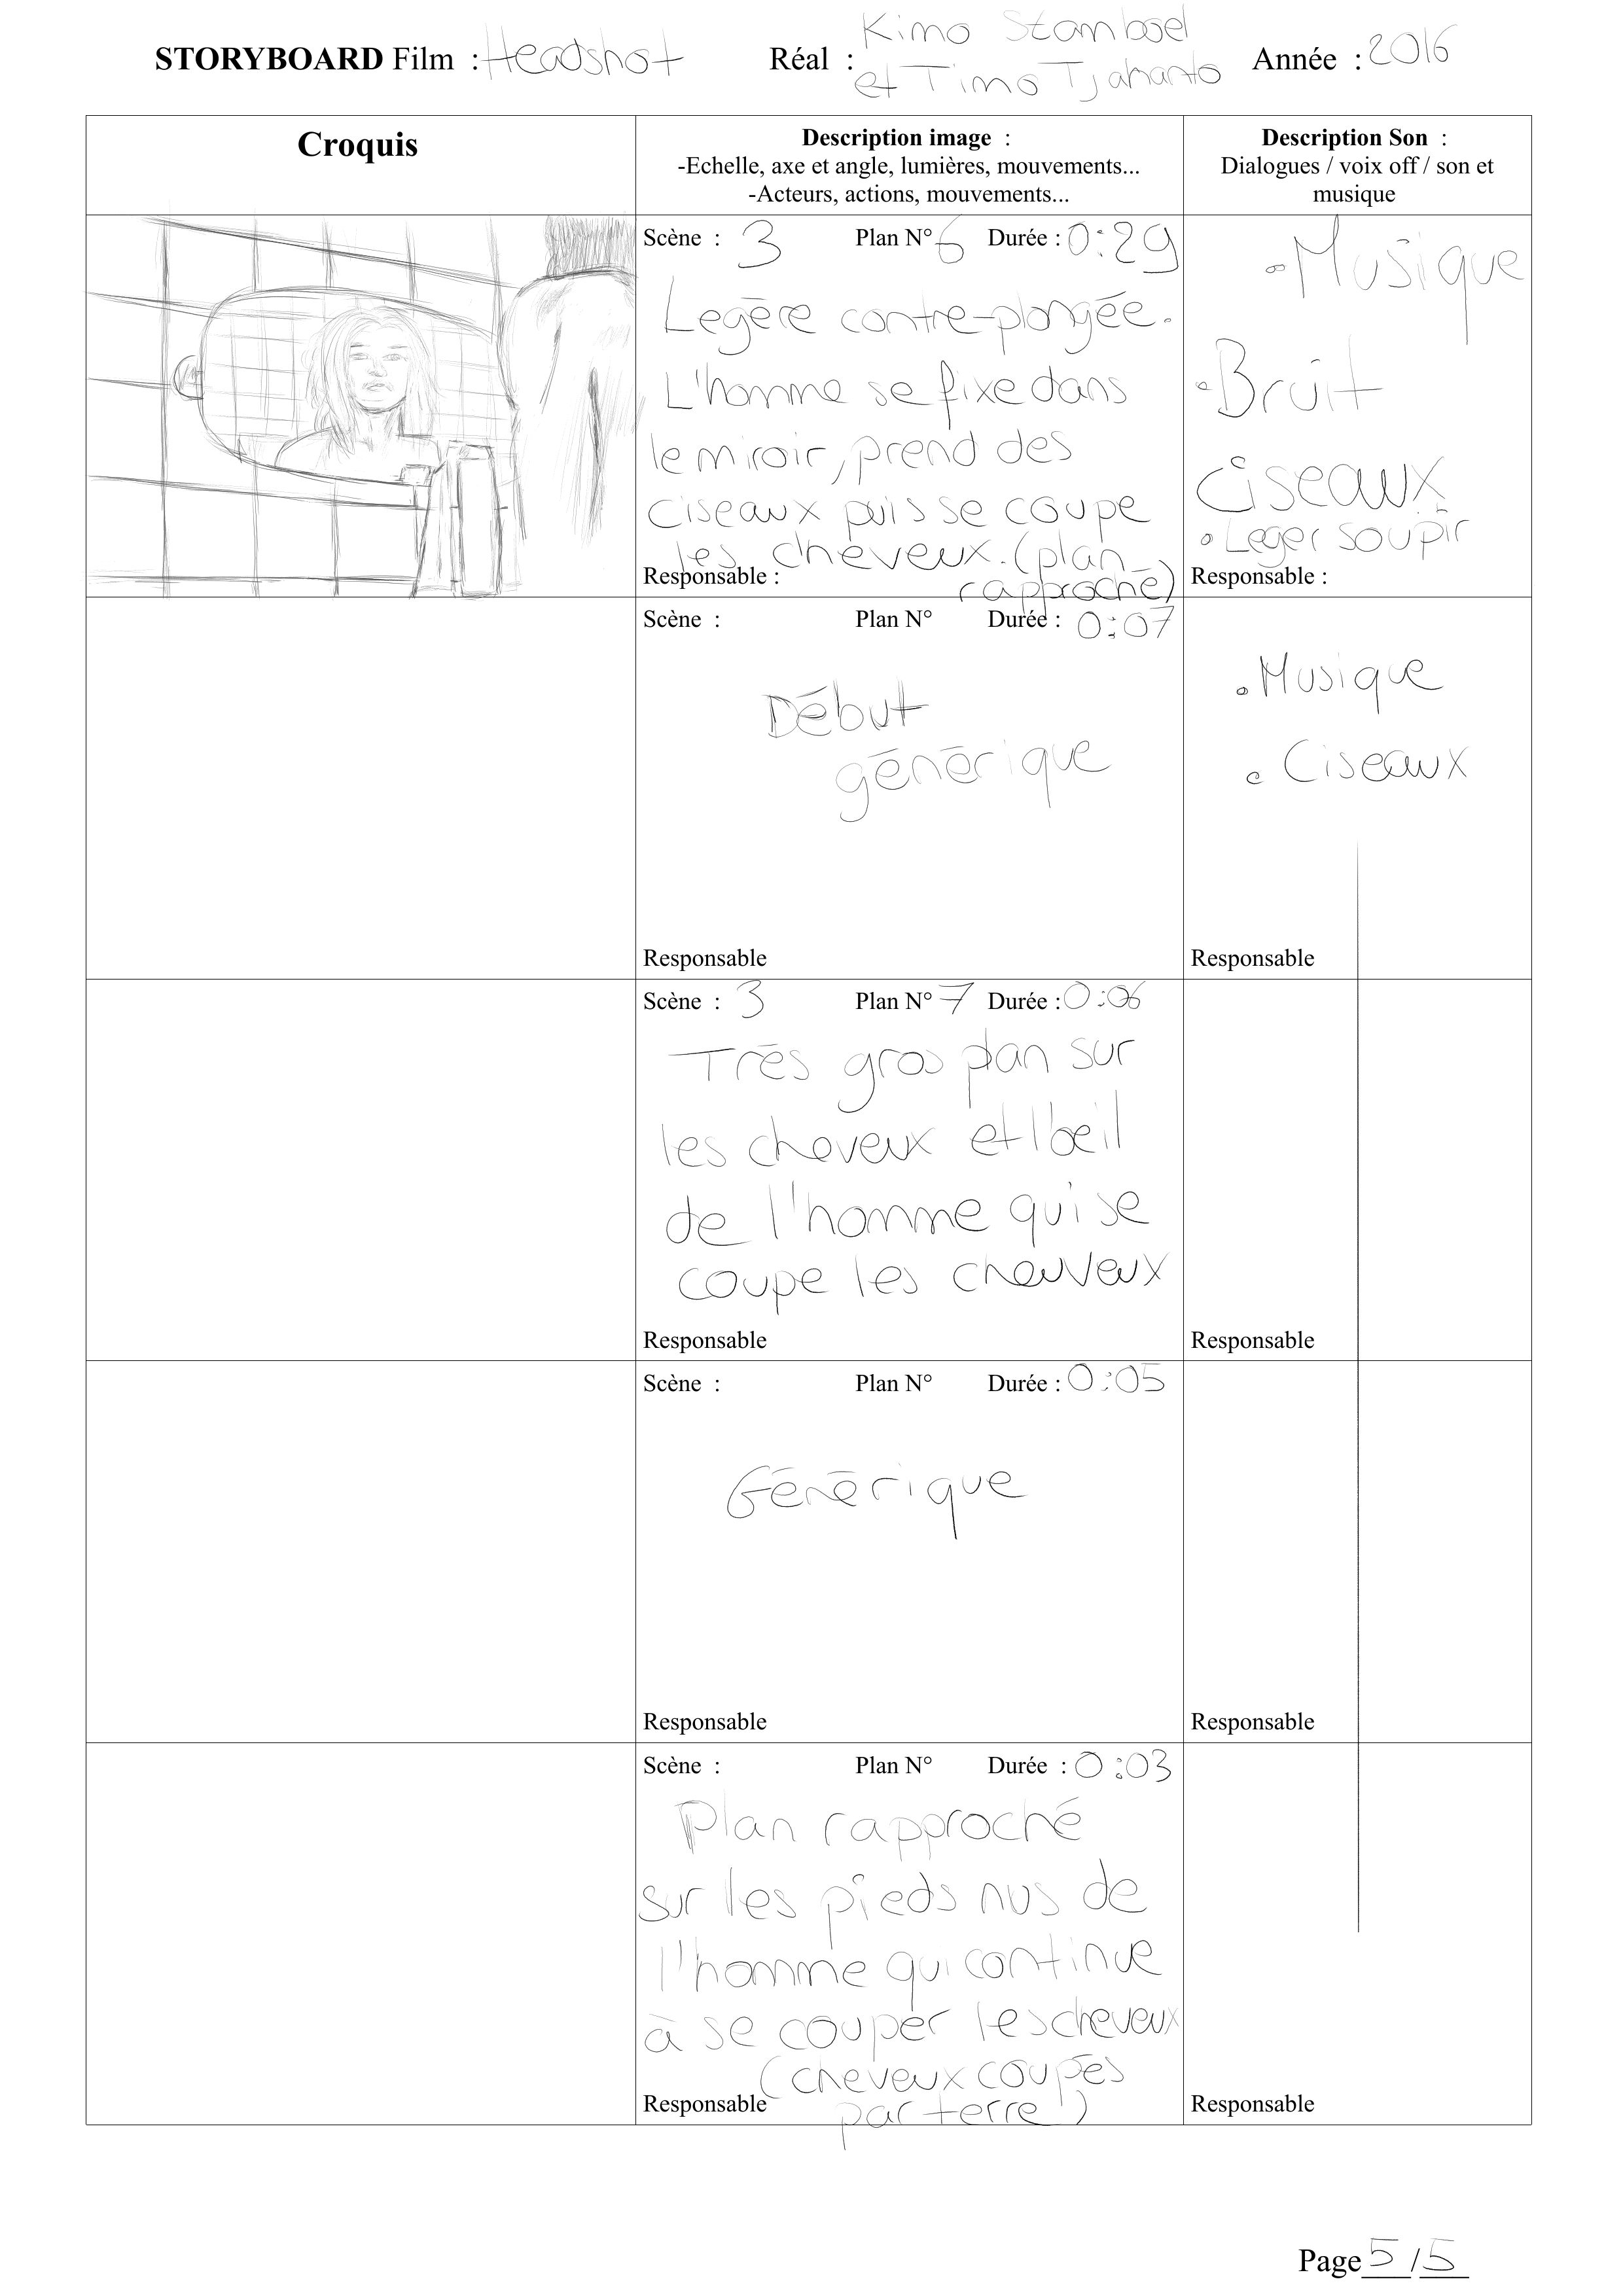 STORYBOARD Film : Headshot Réal : Kimo Stamboel et Timo Tjahanto Année : 2016
Croquis
Description image :
-Echelle, axe et angle, lumières, mouvements...
-Acteurs, actions, mouvements...
Description Son :
Dialogues / voix off / son et
musique
Scène : 3 Plan N° 6 Durée : 0:29
Legère contre-plongée.
L'homme se fixe dans
le miroir, prend des
ciseaux puis se coupe
les cheveux. (plan
rapproché)
Responsable :
Musique
Bruit
Ciseaux
Leger soupir
Responsable :
Scène : Plan N° Durée : 0:07
Début
générique
Responsable
Musique
Ciseaux
Responsable
Scène : 3 Plan N° 7 Durée : 0:06
Très gros plan sur
les cheveux et l'oeil
de l'homme qui se
coupe les cheuveux
Responsable
Responsable
Scène : Plan N° Durée : 0:05
Générique
Responsable
Responsable
Scène : Plan N° Durée : 0:03
Plan rapproché
sur les pieds nus de
l'homme qui continue
à se couper les cheveux
(cheveux coupés
par terre)
Responsable
Responsable
Page 5 / 5